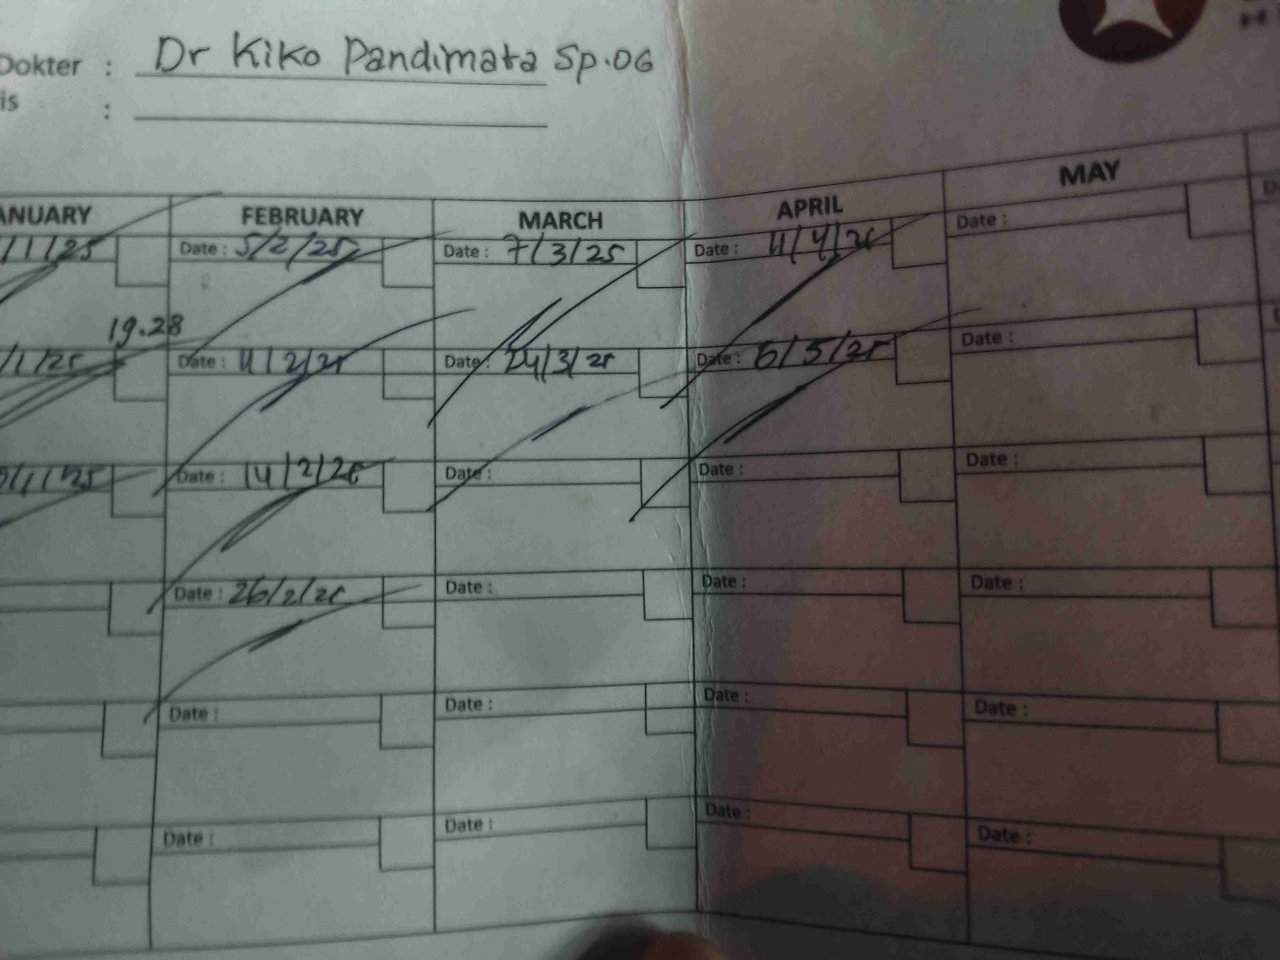 Dokter : Dr Kiko Pandimata Sp.OG
is :
ANUARY FEBRUARY MARCH APRIL MAY
/1/25 Date : 5/2/25 Date : 7/3/25 Date : 11/4/25 Date :
19.28
/1/25 Date : 11/2/25 Date : 24/3/25 Date : 6/5/25 Date :
/1/25 Date : 14/2/25 Date : Date : Date :
Date : 26/2/25 Date : Date : Date :
Date : Date : Date : Date :
Date : Date : Date : Date :